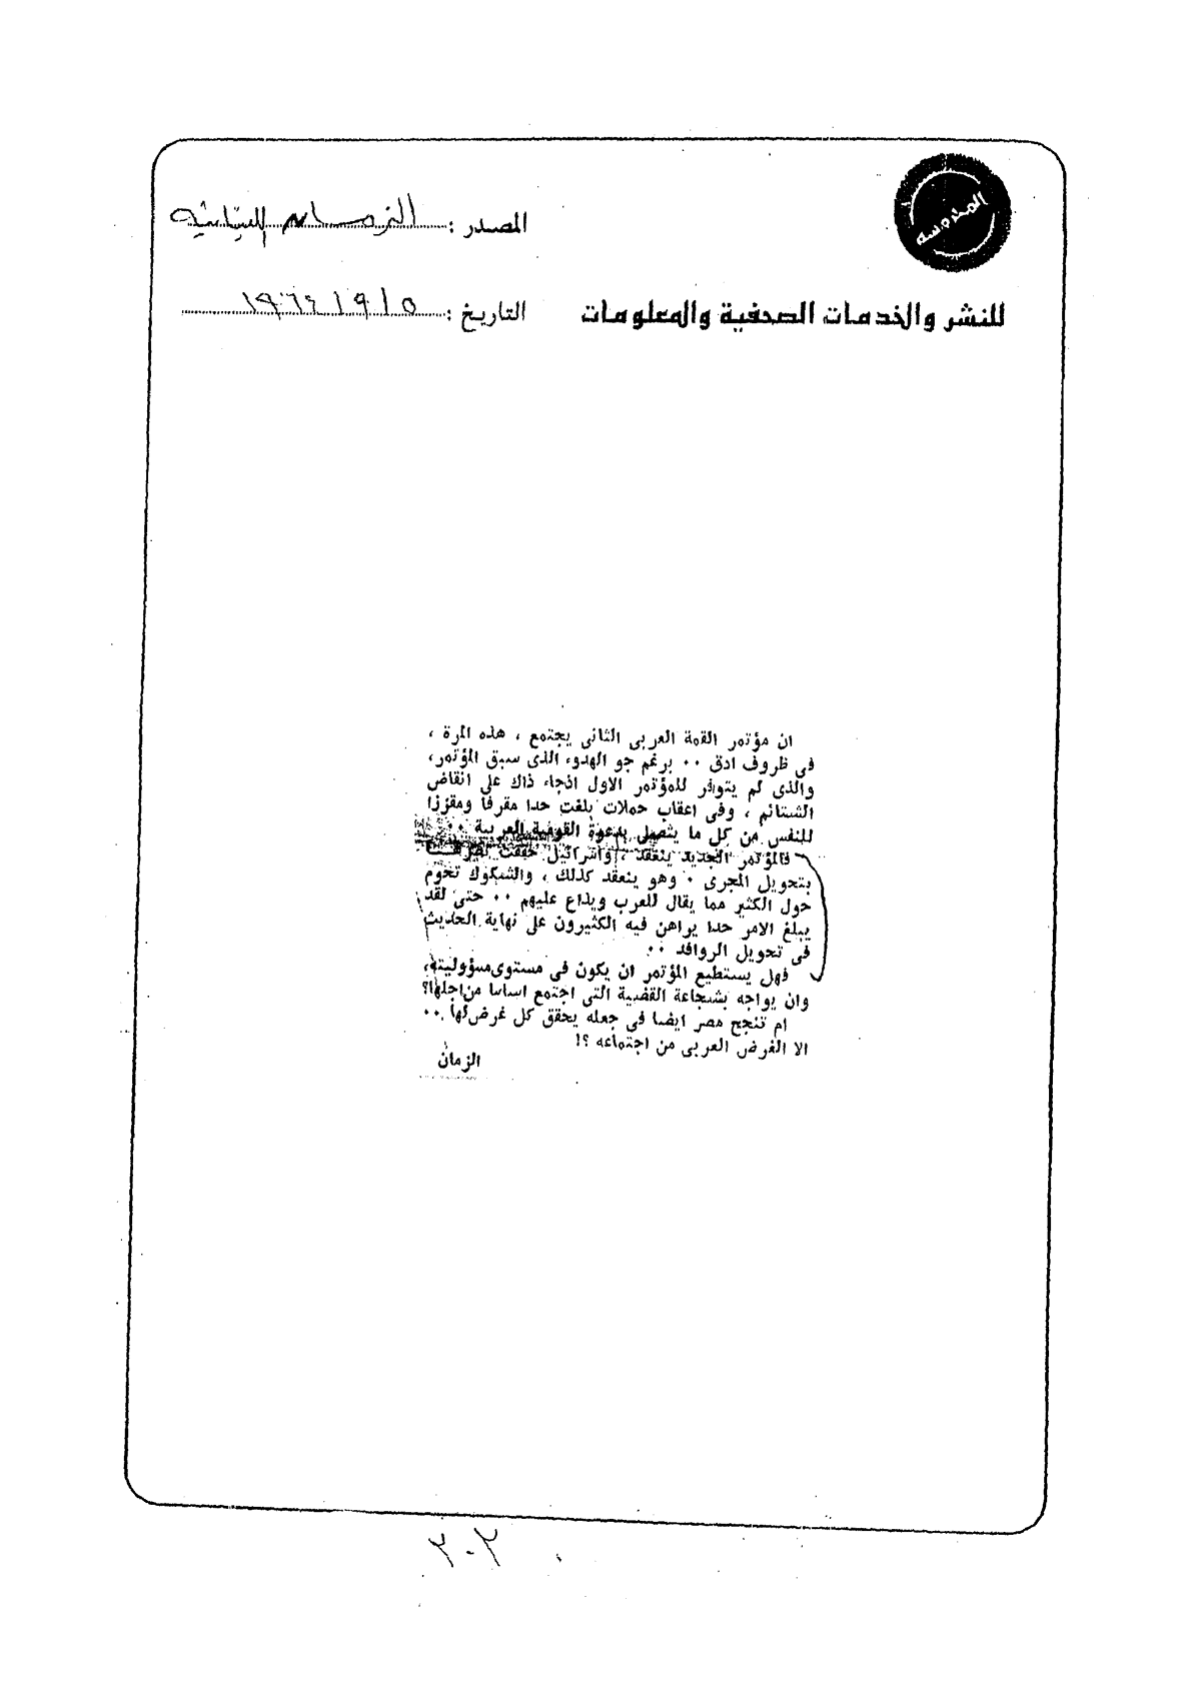 المصدر : الزمان اللبنانية
للنشر والخدمات الصحفية والمعلومات
التاريخ : ٥ / ٩ / ١٩٦٤
ان مؤتمر القمة العربى الثانى يجتمع ، هذه المرة ،
فى ظروف ادق ٠٠ برغم جو الهدوء الذى سبق المؤتمر،
والذى لم يتوافر للمؤتمر الاول اذجاء ذاك على انقاض
الشتائم ، وفى اعقاب حملات بلغت حدا مقرفا ومقززا
للنفس من كل ما يتصل بدعوة القومية العربية ٠٠
فالمؤتمر الجديد ينعقد ، واسرائيل حققت
بتحويل المجرى ٠ وهو ينعقد كذلك ، والشكوك تحوم
حول الكثير مما يقال للعرب ويذاع عليهم ٠٠ حتى لقد
يبلغ الامر حدا يراهن فيه الكثيرون على نهاية الحديث
فى تحويل الروافد ٠٠
فهل يستطيع المؤتمر ان يكون فى مستوى مسؤوليته،
وان يواجه بشجاعة القضية التى اجتمع اساسا من اجلها؟
ام تنجح مصر ايضا فى جعله يحقق كل غرض لها ٠٠
الا الغرض العربى من اجتماعه ؟!
الزمان
٢٠٢